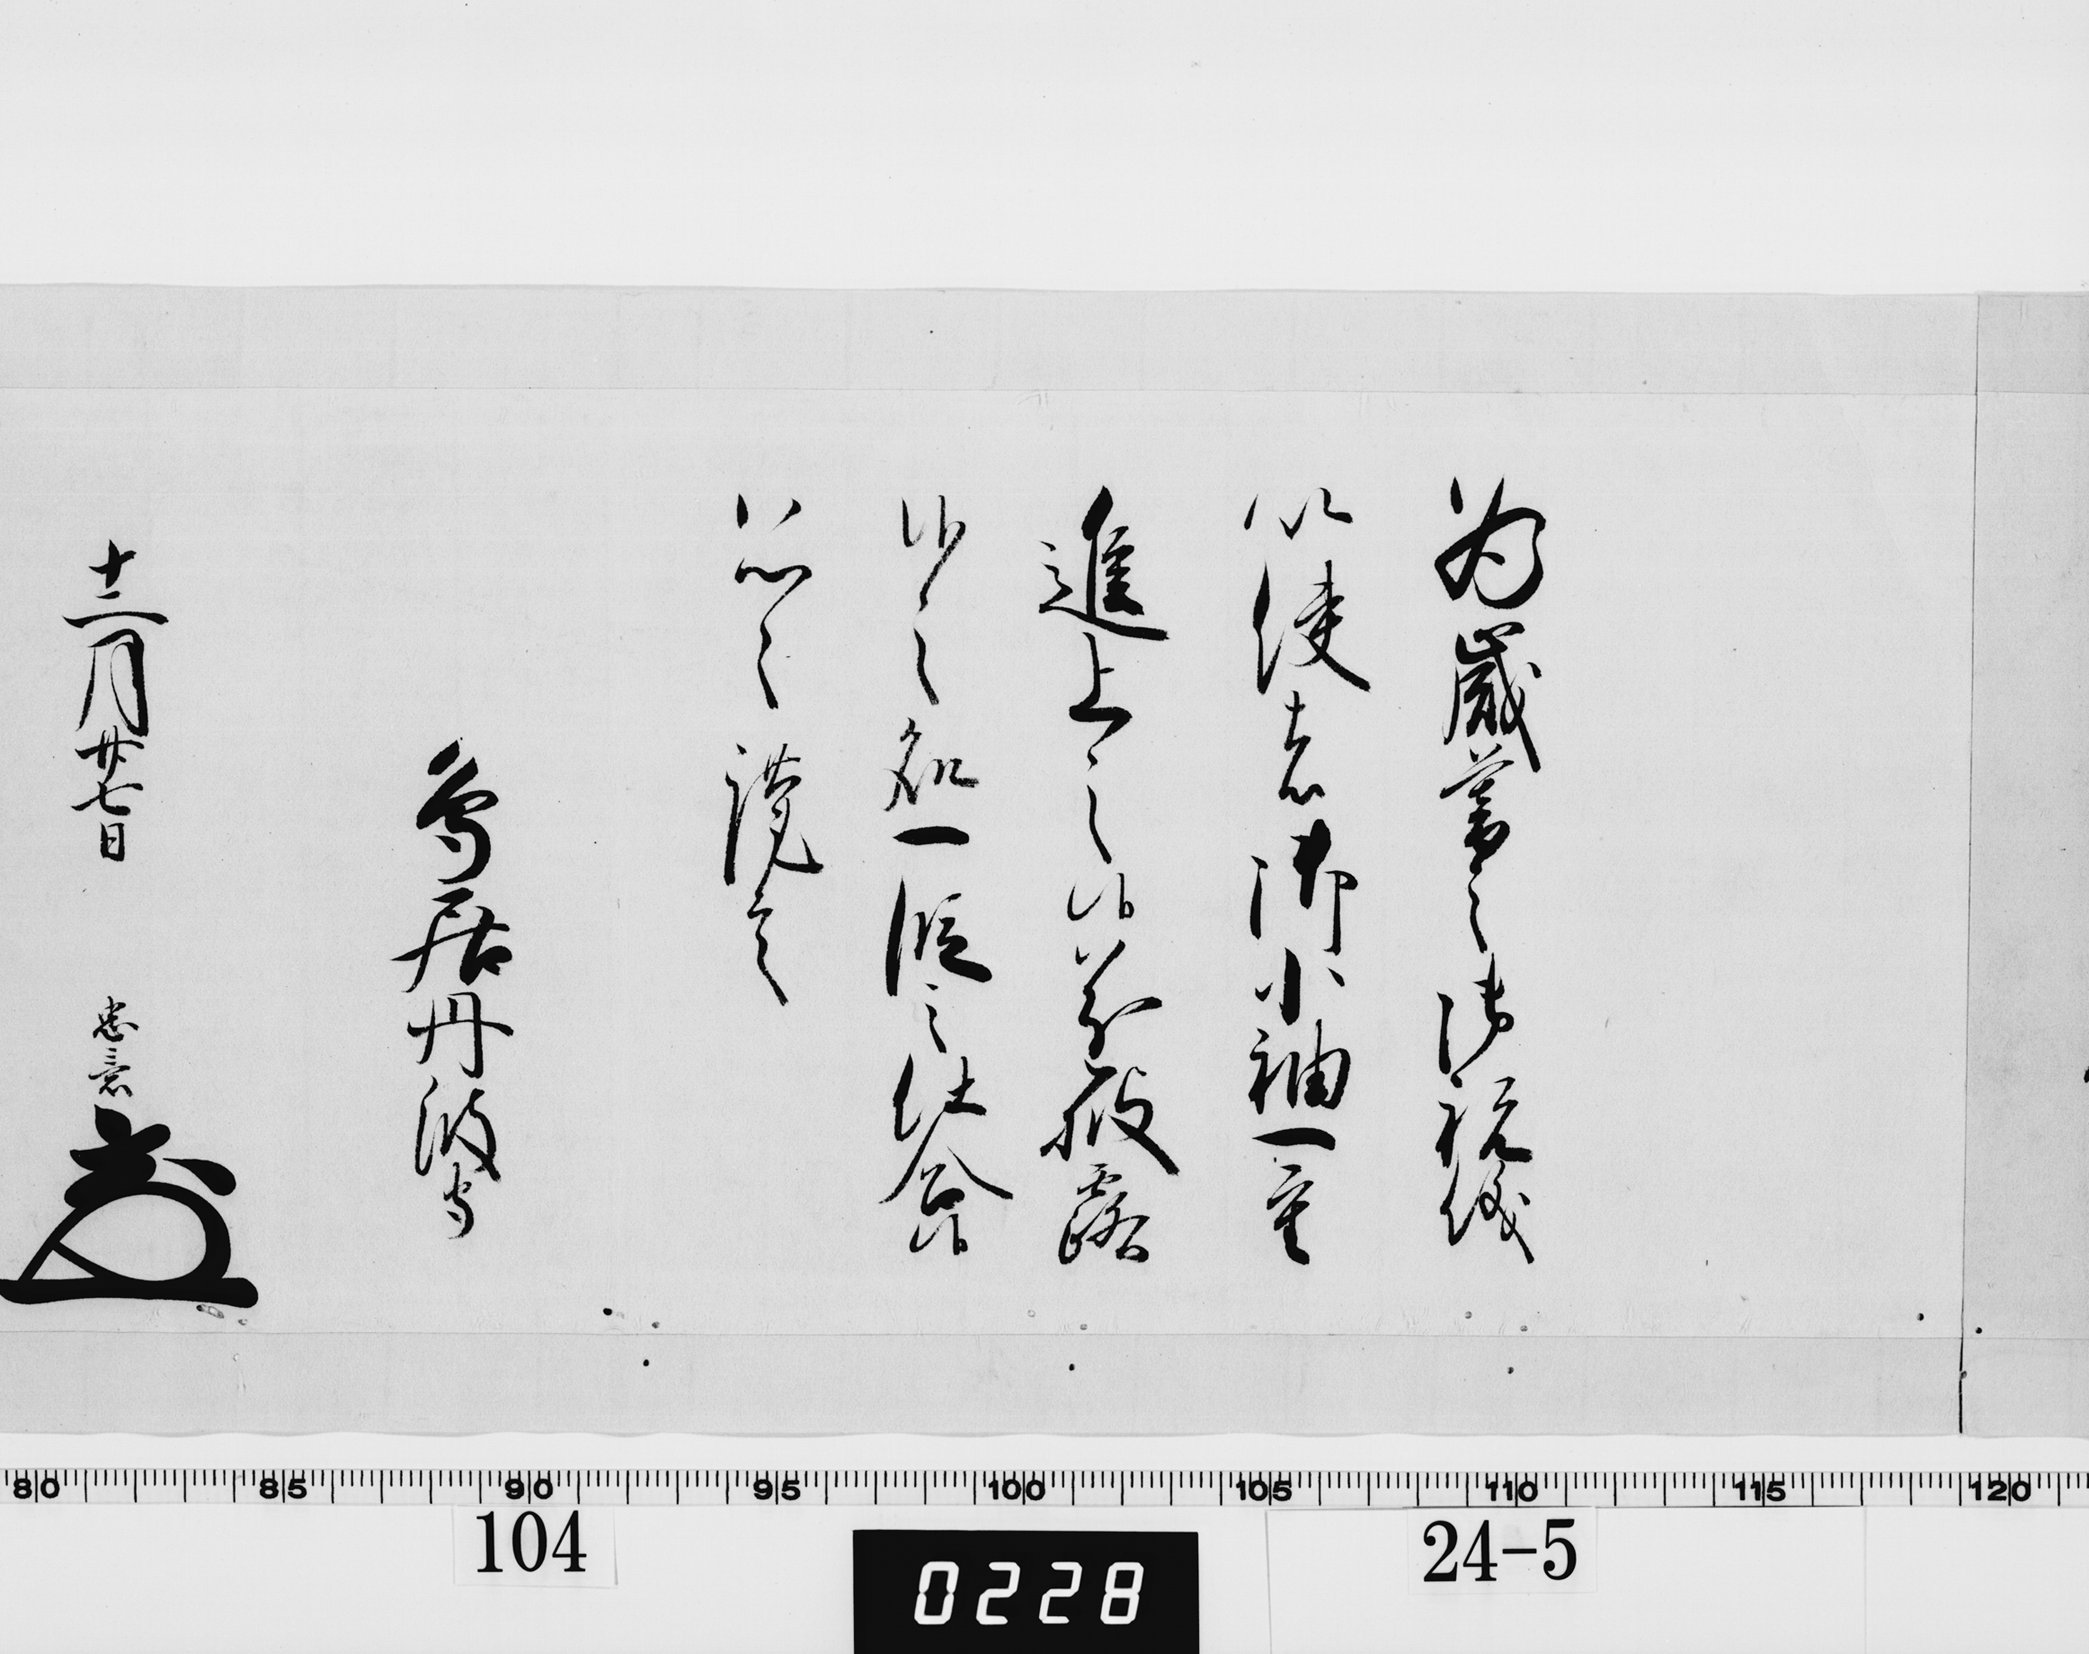 為歳暮之御祝儀
以使者御小袖一重
進上之候首尾能披露
候之処一段之仕合候
恐々謹言
鳥居丹波守
十二月廿七日
忠意
80 85 90 95 100 105 110 115 120
104
0228
24-5